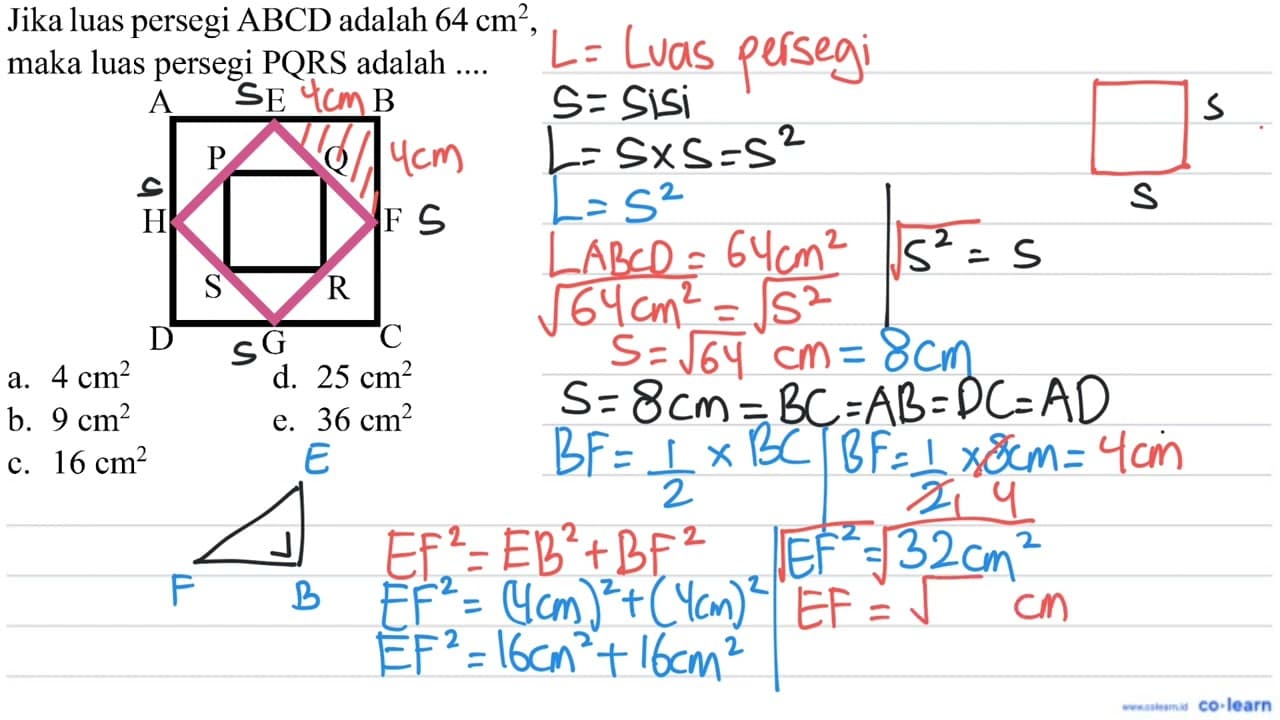 Jika luas persegi ABCD adalah 64 cm²,
maka luas persegi PQRS adalah ....
A S E 4cm B
P Q 4cm
S
H F S
S R
D S G C
a. 4 cm²
d. 25 cm²
b. 9 cm²
e. 36 cm²
c. 16 cm²
E
F B
L = Luas persegi
S = Sisi
L = S x S = S²
L = S²
S
S
LABCD = 64cm²
√S² = S
√64cm² = √S²
S = √64 cm = 8cm
S = 8cm = BC = AB = DC = AD
BF = 1/2 x BC
BF = 1/2 x 8cm = 4cm
1 4
EF² = EB² + BF²
EF² = (4cm)² + (4cm)²
EF² = 16cm² + 16cm²
√EF² = √32cm²
EF = √ cm
www.colearn.id co·learn